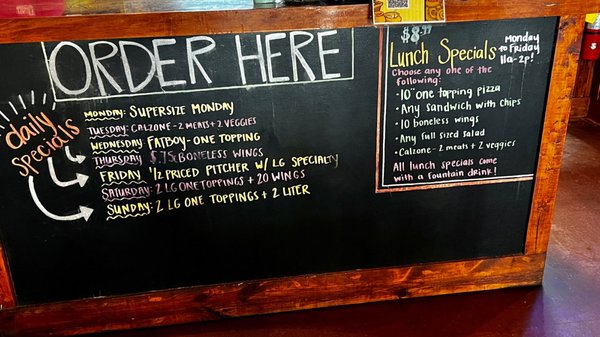 ORDER HERE
daily
specials
MONDAY: SUPERSIZE MONDAY
TUESDAY: CALZONE - 2 MEATS + 2 VEGGIES
WEDNESDAY: FATBOY- ONE TOPPING
THURSDAY: $.75¢ BONELESS WINGS
FRIDAY: 1/2 PRICED PITCHER W/ LG SPECIALTY
SATURDAY: 2 LG ONE TOPPINGS + 20 WINGS
SUNDAY: 2 LG ONE TOPPINGS + 2 LITER
$8.77
Lunch Specials
Monday
to Friday
11a-2p!
Choose any one of the
following:
• 10" one topping pizza
• Any Sandwich with chips
• 10 boneless wings
• Any full sized salad
• Calzone - 2 meats + 2 veggies
All lunch specials come
with a fountain drink!